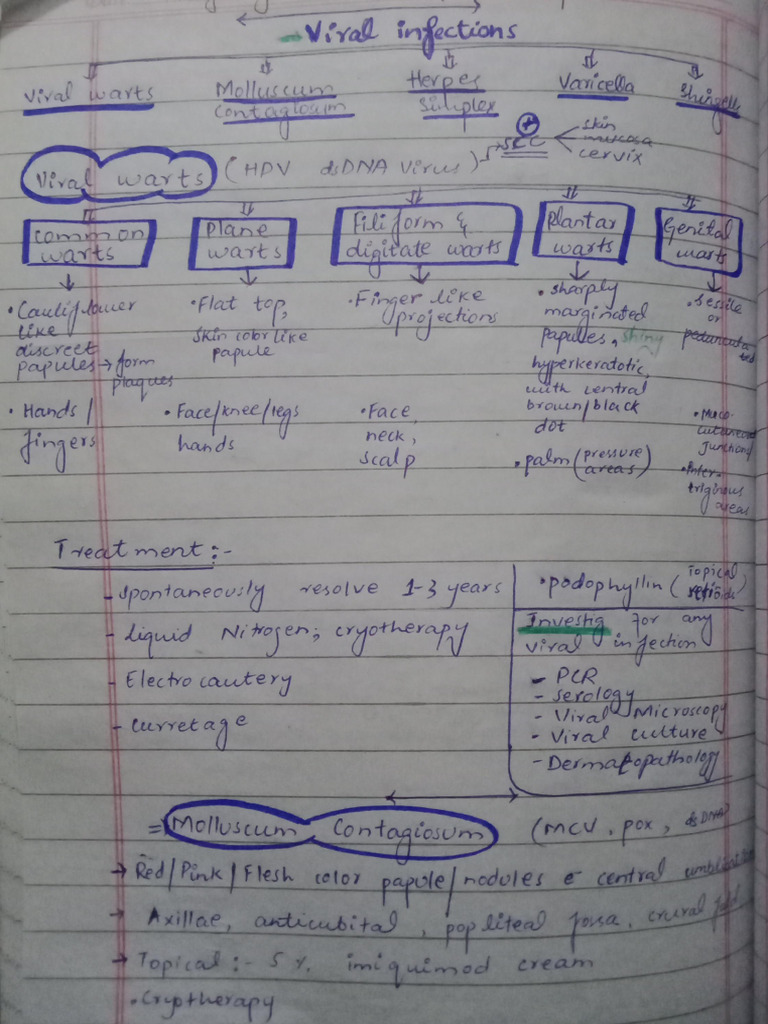 Viral infections
Viral warts
Molluscum
contagiosum
Herpes
Simplex
Varicella
Viral warts (HPV dsDNA Virus) → SCC
skin
mucosa
cervix
common
warts
Plane
warts
Filiform &
digitate warts
Plantar
warts
Genital
warts
• Cauliflower
like
discreet
papules → form
plaques
• Hands/
fingers
• Flat top,
skin color like
papule
• Face/knee/legs
hands
• Finger like
projections
• Face,
neck,
scalp
• sharply
marginated
papules, shiny
hyperkeratotic,
with central
brown/black
dot
• palm (pressure
areas)
• sessile
or
pedunculated
• Muco-
cutaneous
junctions
• Inter-
triginous
areas
Treatment :-
- spontaneously resolve 1-3 years
- Liquid Nitrogen; cryotherapy
- Electrocautery
- curretage
• podophyllin (Topical
Investig for any
viral infection
- PCR
- serology
- Viral Microscopy
- Viral culture
- Dermatopathology
= Molluscum Contagiosum (MCV, pox, dsDNA)
→ Red/Pink/Flesh color papule/nodules c central
→ Axillae, anticubital, popliteal fossa, crural fold
→ Topical :- 5 %. imiquimod cream
• Cryptherapy